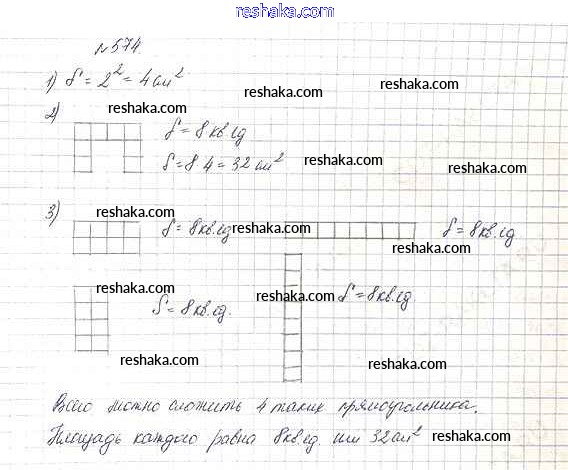 www.reshaka.com
№574
1) S = 2² = 4 см²
reshaka.com
reshaka.com
reshaka.com
2)
S = 8 кв.ед
reshaka.com
S = 8 4 = 32 см²
reshaka.com
reshaka.com
3)
reshaka.com
S = 8кв.ед
reshaka.com
S = 8кв.ед
reshaka.com
reshaka.com
S = 8кв.ед.
reshaka.com
S = 8кв.ед
reshaka.com
reshaka.com
Всего можно сложить 4 таких прямоугольника.
Площадь каждого равна 8кв.ед или 32см²
reshaka.com